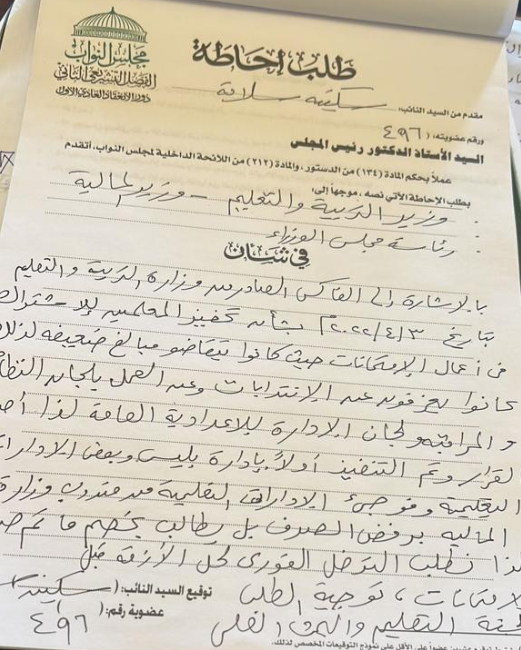 مجلس النواب
الفصل التشريعي الثاني
دور الانعقاد العادي الأول
طلب إحاطة
مقدم من السيد النائب: سكينه سلامة
ورقم عضويته: (٤٩٦
السيد الأستاذ الدكتور رئيس المجلس
عملاً بحكم المادة (١٣٤) من الدستور، والمادة (٢١٢) من اللائحة الداخلية لمجلس النواب، أتقدم
بطلب الإحاطة الآتي نصه، موجهاً إلى:
وزير التربية والتعليم - وزير المالية
رئاسة مجلس الوزراء
في شأن
بالإشارة إلى الفاكس الصادر من وزارة التربية والتعليم
بتاريخ ٢٠٢٢/٤/٣م بشأن تحفيز المعلمين للاشتراك
فى أعمال الإمتحانات حيث كانوا يتقاضو مبالغ ضعيفه لذلك
كانوا يعزفون عن الإنتدابات وعن العمل بلجان النظا
و المراقبة ولجان الإدارة للاعدادية العامة لذا أص
القرار وتم التنفيذ أولاً بإدارة بلبيس وبعض الإدارات
التعليمية وفوجئ الإدارات التعليمية من مندوب وزارة
المالية برفض الصرف بل يطالب بخصم ما تم ص
لذا نطلب التدخل الفورى لحل الأزمة قبل
الامتحانات، توجية الطلب
لجنة التعليم والبحث العلمى
توقيع السيد النائب: (سكينه
عضوية رقم: (٤٩٦